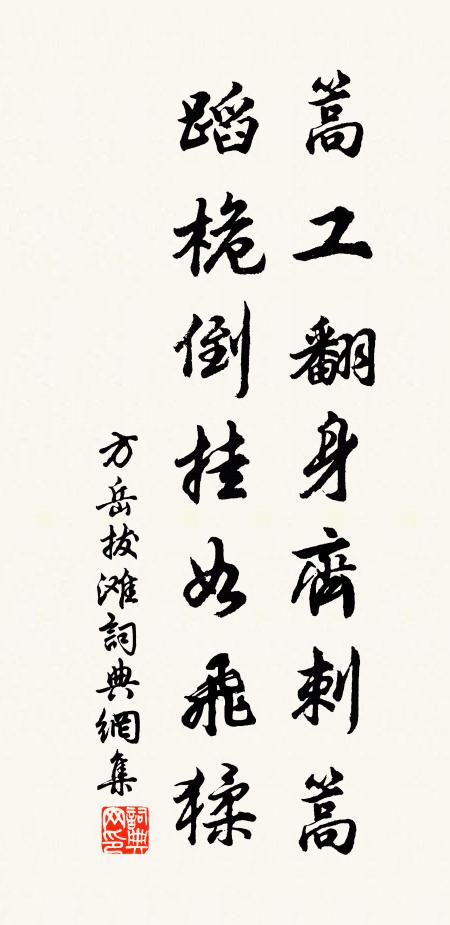 篙工翻身齊刺篙
蹈桅倒挂如飛猱
方岳拔滩詞典網集
詞典网印